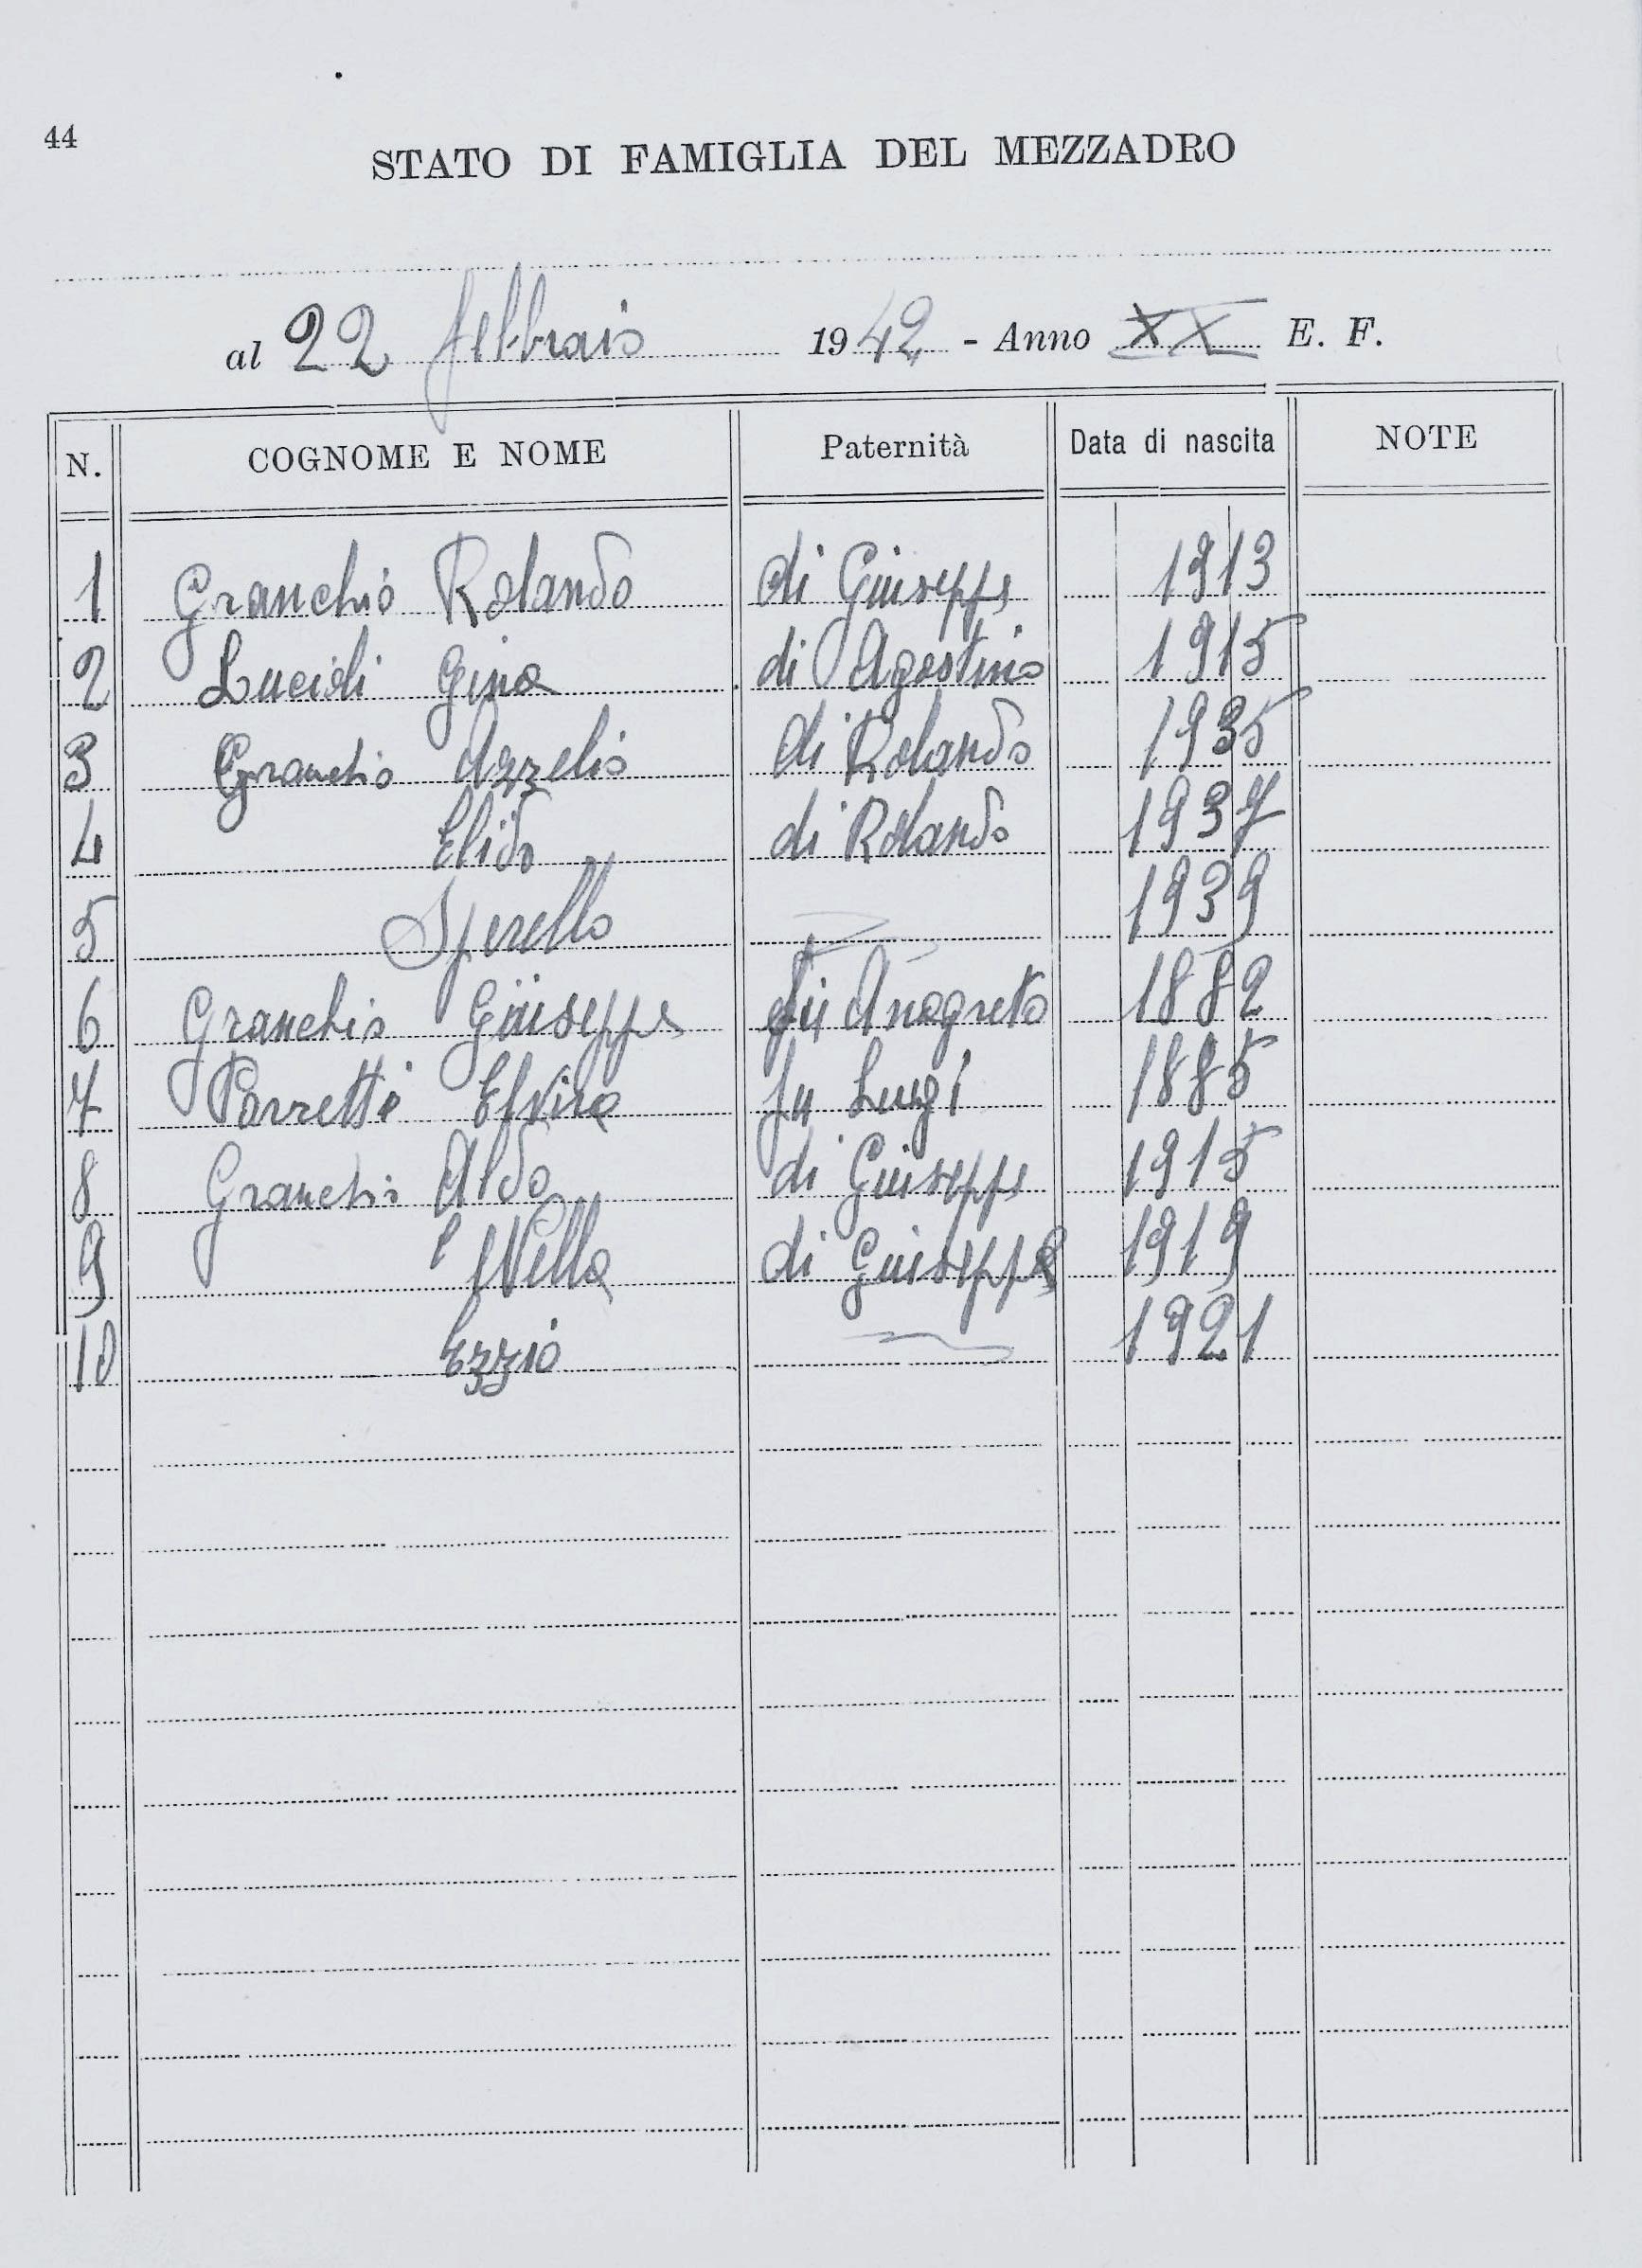 44
STATO DI FAMIGLIA DEL MEZZADRO
al 22 febbraio 1942 - Anno XX E. F.
N. COGNOME E NOME Paternità Data di nascita NOTE
1 Granchio Rolando di Giuseppe 1913
2 Lucioli Gina di Agostino 1915
3 Granchio Azzelio di Rolando 1935
4 Elido di Rolando 1937
5 Sperello 1939
6 Granchio Giuseppe fu 1882
7 Porretti Elvira fu Luigi 1885
8 Granchio Aldo di Giuseppe 1915
9 Nella di Giuseppe 1919
10 Ezzio 1921